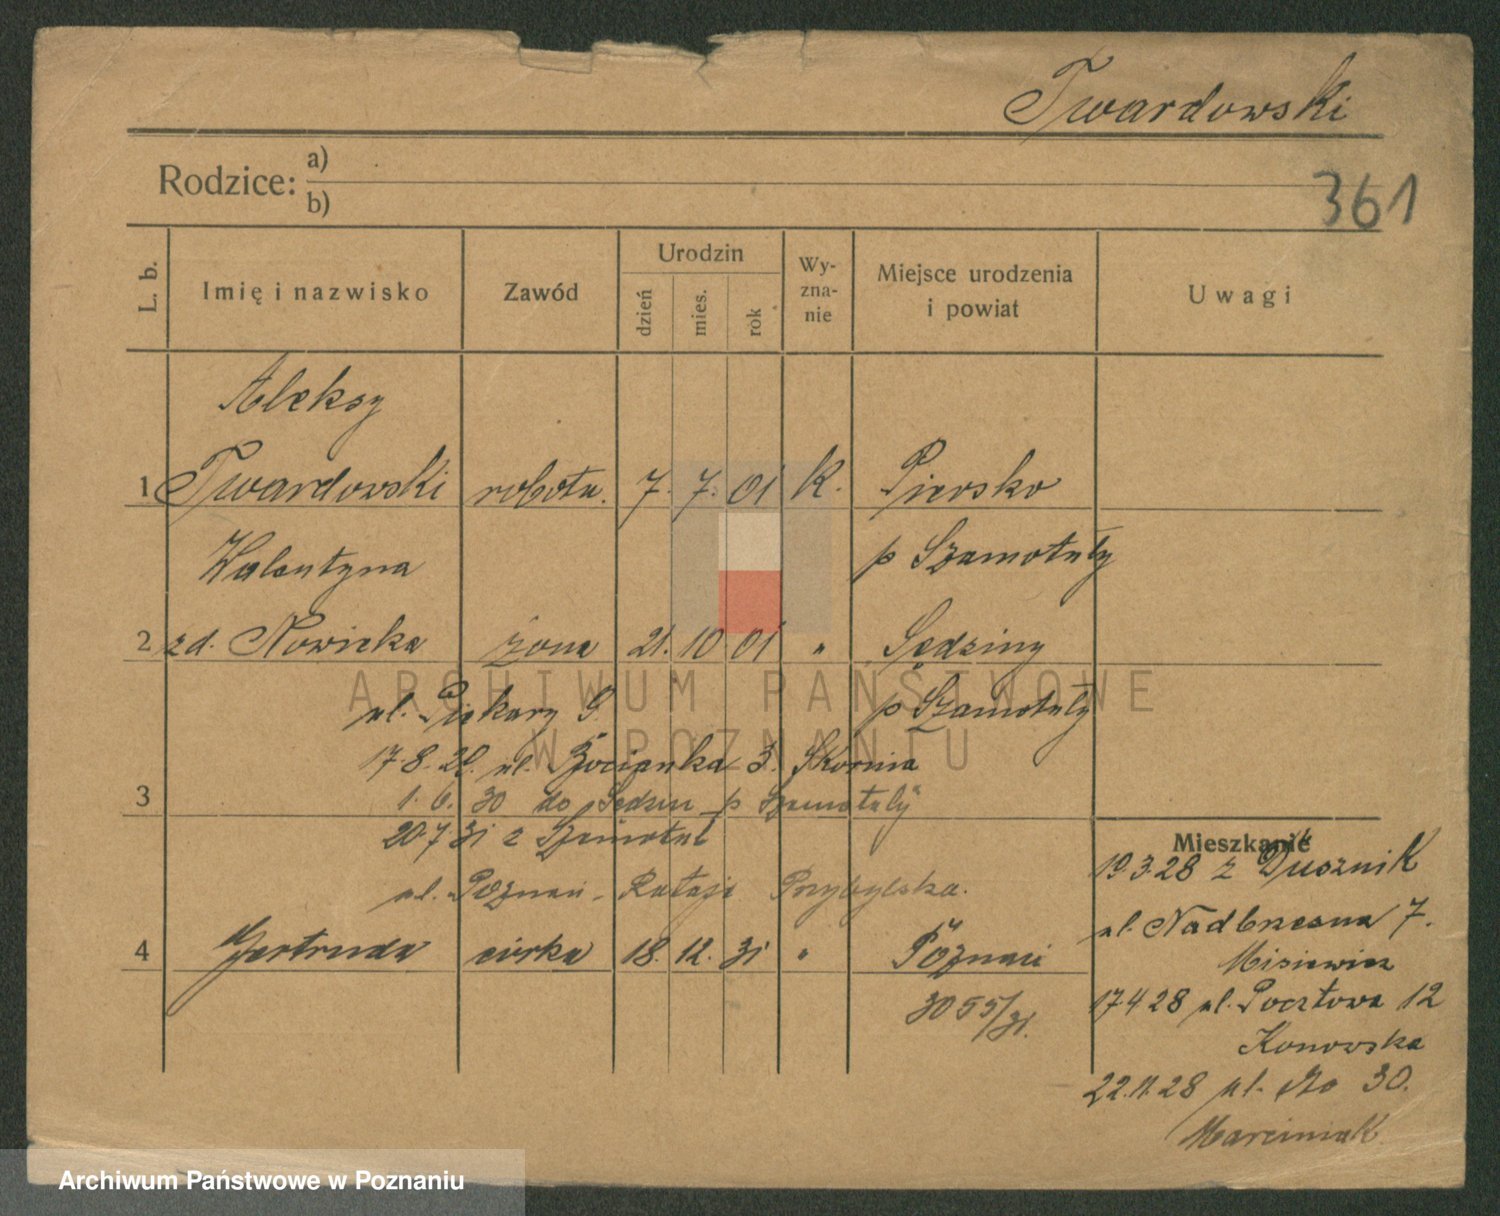 Twardowski
Rodzice: a)
b)
361
L. b.
Imię i nazwisko
Zawód
Urodzin
dzień
mies.
rok
Wy-
zna-
nie
Miejsce urodzenia
i powiat
Uwagi
Aleksy
1 Twardowski robotn. 7. 7. 01 K. Piersko
Walentyna p Szamotuły
2 zd. Nowicka żona 21. 10 01 " Sędziny
ul. Piekary p Szamotuły
17.8. ul. 3. Skornia
3
1. 6. 30 do Sędzin p Szamotuły
20 7 31 z Szamotuł
ul. Poznań - Rataje Przybylska.
4 Gertruda córka 18. 12. 31 " Poznań
3055/31.
Mieszkanie
19.3.28 z Dusznik
ul. Nadbrzeżna 7.
Misiewicz
17 4 28 ul. Pocztowa 12
Konowska
22.11.28 ul. 30.
Marciniak
ARCHIWUM PAŃSTWOWE
W POZNANIU
Archiwum Państwowe w Poznaniu